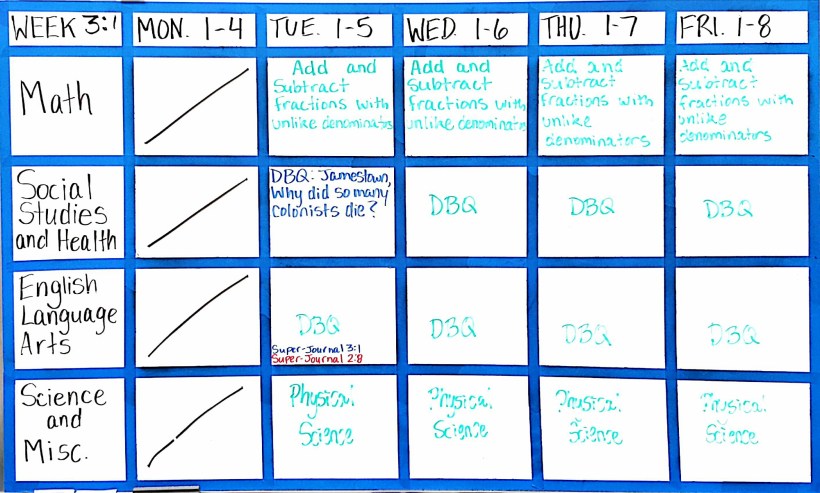 WEEK 3:1
MON. 1-4
TUE. 1-5
WED. 1-6
THU. 1-7
FRI. 1-8
Math
Add and
Subtract
fractions with
unlike denominators
Add and
Subtract
fractions with
unlike denominators
Add and
Subtract
fractions with
unlike
denominators
Add and
Subtract
fractions with
unlike
denominators
Social
Studies
and Health
DBQ: Jamestown,
Why did so many
colonists die?
DBQ
DBQ
DBQ
English
Language
Arts
DBQ
Super-Journal 3:1
Super-Journal 2:8
DBQ
DBQ
DBQ
Science
and
Misc.
Physical
Science
Physical
Science
Physical
Science
Physical
Science